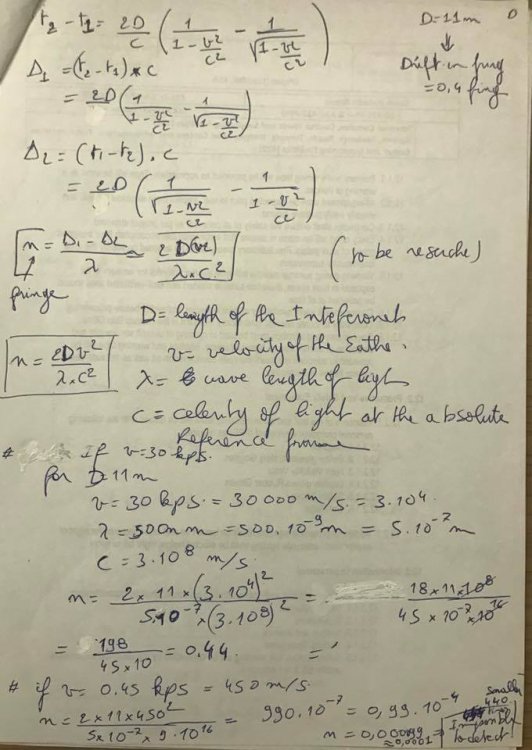 t₂ - t₁ = 2D/C (1/(1 - v²/c²) - 1/√(1 - v²/c²))
D = 11 m
↓
Drift in fring
= 0,4 fring
Δ₁ = (t₂ - t₁) * c
= 2D (1/(1 - v²/c²) - 1/√(1 - v²/c²))
Δ₂ = (t₁ - t₂) . c
= 2D (1/√(1 - v²/c²) - 1/(1 - v²/c²))
n = (Δ₁ - Δ₂)/λ ≃ 2D(v²)/(λ × c²)
(to be reserche)
fringe
D = length of the Inteferonets
n = 2Dv²/(λ × c²)
v = velocity of the Earthe .
λ = wave length of ligh
C = celenity of light at the absolute
Reference frome
# If v = 30 kps.
for D = 11 m
v = 30 kps = 30 000 m/s = 3.10⁴.
λ = 500 n m = 500 . 10⁻⁹ m = 5.10⁻⁷ m
C = 3.10⁸ m/s.
n = 2 × 11 × (3.10⁴)²/(5.10⁻⁷ × (3.10⁸)²) = 18 × 11 × 10⁸/(45 × 10⁻⁷ × 10¹⁶)
= 198/(45 × 10) = 0.44 =
# if v = 0.45 kps = 450 m/s
n = 2 × 11 × 450²/(5 × 10⁻⁷ × 9.10¹⁶) = 990.10⁻⁷ = 0,99 . 10⁻⁴
smaller
440
n = 0,000099 ⇒ Impossible
≈ 0,0001 to detect